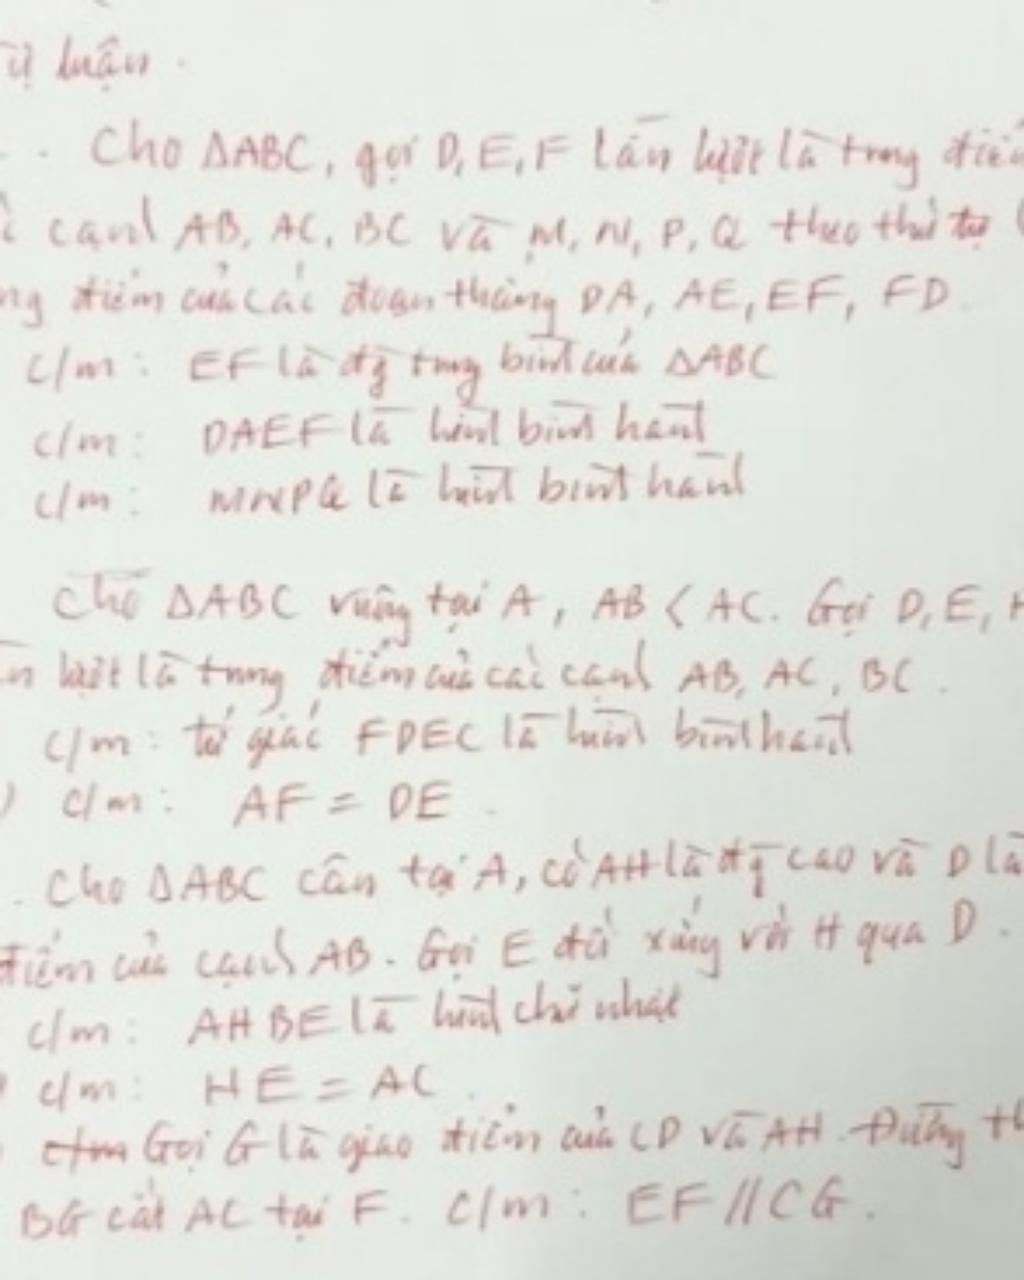 Tự luận.
Cho ΔABC, gọi D, E, F lần lượt là trung điểm
cạnh AB, AC, BC và M, N, P, Q theo thứ tự
điểm của các đoạn thẳng DA, AE, EF, FD.
c/m: EF là đg trung bình của ΔABC
c/m: DAEF là hình bình hành
c/m: MNPQ là hình bình hành
Cho ΔABC vuông tại A, AB < AC. Gọi D, E,
lượt là trung điểm của các cạnh AB, AC, BC.
c/m: tứ giác FDEC là hình bình hành
) c/m: AF = DE.
. Cho ΔABC cân tại A, có AH là đg cao và D là
điểm của cạnh AB. Gọi E đối xứng với H qua D.
c/m: AHBE là hình chữ nhật
c/m: HE = AC.
Gọi G là giao điểm của CD và AH. Đường
BG cắt AC tại F. c/m: EF // CG.